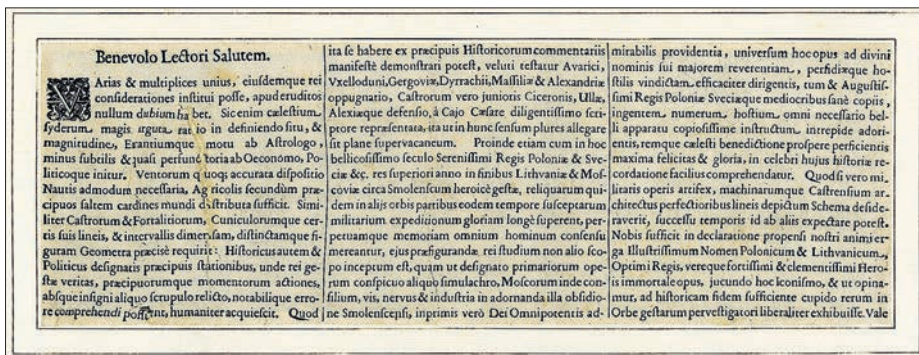 Benevolo Lectori Salutem.
VArias & multiplices unius, eiusdemque rei
considerationes institui posse, apud eruditos
nullum dubium habet. Sic enim cælestium
syderum magis arguta ratio in definiendo situ, &
magnitudine, Erantiumque motu ab Astrologo,
minus subtilis & quasi perfunctoria ab Oeconomo, Po-
liticoque initur. Ventorum quoq; accurata dispositio
Nautis admodum necessaria, Agricolis secundùm præ-
cipuos saltem cardines mundi distributa sufficit. Simi-
liter Castrorum & Fortalitiorum, Cuniculorumque cer-
tis suis lineis, & intervallis dimensam, distinctamque fi-
guram Geometra præcisè requirit: Historicus autem &
Politicus designatis præcipuis stationibus, unde rei ge-
stæ veritas, præcipuorumque momentorum actiones,
absque insigni aliquo scrupulo relicto, notabilique erro-
re comprehendi possent, humaniter acquiescit. Quod
ita se habere ex præcipuis Historicorum commentariis
manifestè demonstrari potest, veluti testatur Avarici,
Vxelloduni, Gergoviæ, Dyrrachii, Massiliæ & Alexandriæ
oppugnatio, Castrorum vero junioris Ciceronis, Ullæ,
Alexiæque defensio, à Cajo Cæsare diligentissimo scri-
ptore repræsentata, ita ut in hunc sensum plures allegare
sit plane supervacaneum. Proinde etiam cum in hoc
bellicosissimo seculo Serenissimi Regis Poloniæ & Sve-
ciæ &c. res superiori anno in finibus Lithvaniæ & Mos-
coviæ circa Smolenscum heroicè gestæ, reliquarum qui-
dem in alijs orbis partibus eodem tempore susceptarum
militarium expeditionum gloriam longè superent, per-
petuamque memoriam omnium hominum consensu
mereantur, ejus præfigurandæ rei studium non alio sco-
po inceptum est, quam ut designato primariorum ope-
rum conspicuo aliquo simulachro, Moscorum inde con-
silium, vis, nervus & industria in adornanda illa obsidio-
ne Smolenscensi, inprimis verò Dei Omnipotentis ad-
mirabilis providentia, universum hoc opus ad divini
nominis sui majorem reverentiam, perfidiæque ho-
stilis vindictam efficaciter dirigentis, tum & Augustis-
simi Regis Poloniæ Sveciæque mediocribus sanè copiis,
ingentem numerum hostium omni necessario bel-
li apparatu copiosissime instructum intrepide adori-
entis, remque cælesti benedictione prospere perficientis
maxima felicitas & gloria, in celebri hujus historiæ re-
cordatione facilius comprehendatur. Quod si vero mi-
litaris operis artifex, machinarumque Castrensium ar-
chitectus perfectioribus lineis depictum Schema deside-
raverit, successu temporis id ab aliis expectare potest.
Nobis sufficit in declaratione propensi nostri animi er-
ga Illustrissimum Nomen Polonicum & Lithvanicum,
Optimi Regis, vereque fortissimi & clementissimi Hero-
is immortale opus, jucundo hoc Iconismo, & ut opina-
mur, ad historicam fidem sufficiente cupido rerum in
Orbe gestarum pervestigatori liberaliter exhibuisse. Vale